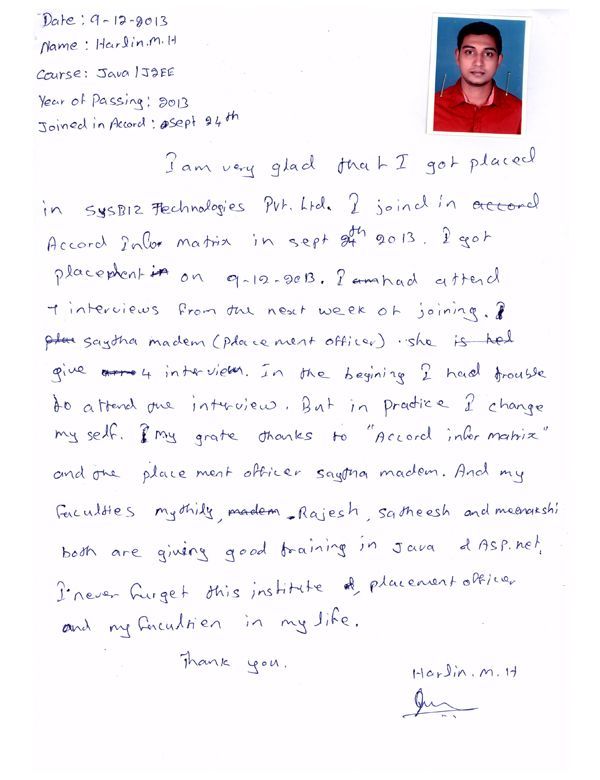 Date : 9-12-2013
Name : Harlin.M.H
Course : Java / J2EE
Year of Passing : 2013
Joined in Accord : Sept 24th
I am very glad that I got placed
in SYSBIZ Technologies Pvt. Ltd. I joind in accord
Accord Infor matrix in sept 24th 2013. I got
placement in on 9-12-2013. I am had attend
interviews from the next week of joining. I
saytha madem (place ment officer) . she is hel
give 4 interview. In the begining I had trouble
to attend the interview. But in practice I change
my self. I my grate thanks to "Accord infor matrix"
and the place ment officer saytha madem. And my
faculties mythily, madem Rajesh, satheesh and meenakshi
both are giving good training in Java & ASP.net.
I never furget this institute &, placement officer
and my facultien in my life.
Thank you.
Harlin.M.H